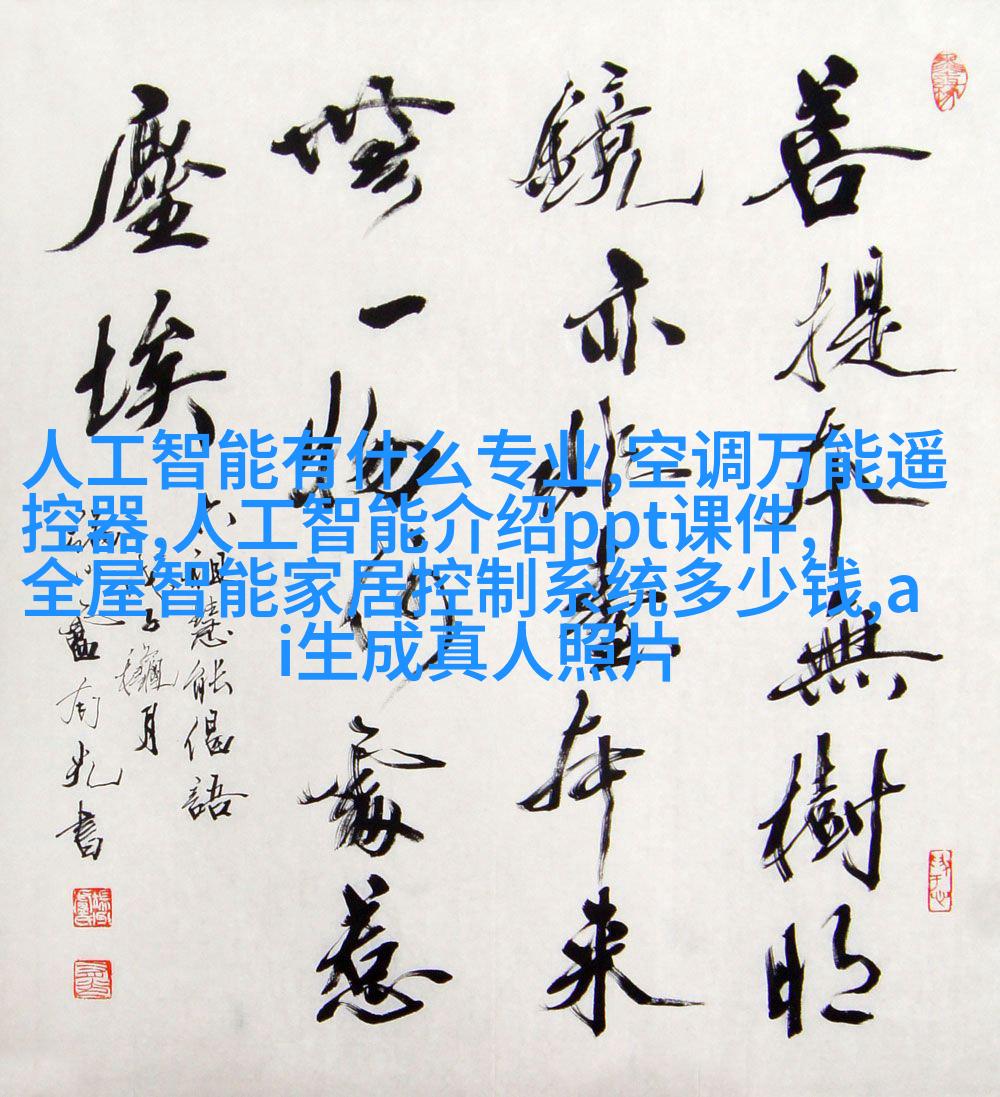 善提本無樹明
鏡亦非臺本来
無一物何處惹
塵埃
六祖慧能偈語
月
書
人工智能有什么专业,空调万能遥
控器,人工智能介绍ppt课件,
全屋智能家居控制系统多少钱,a
i生成真人照片